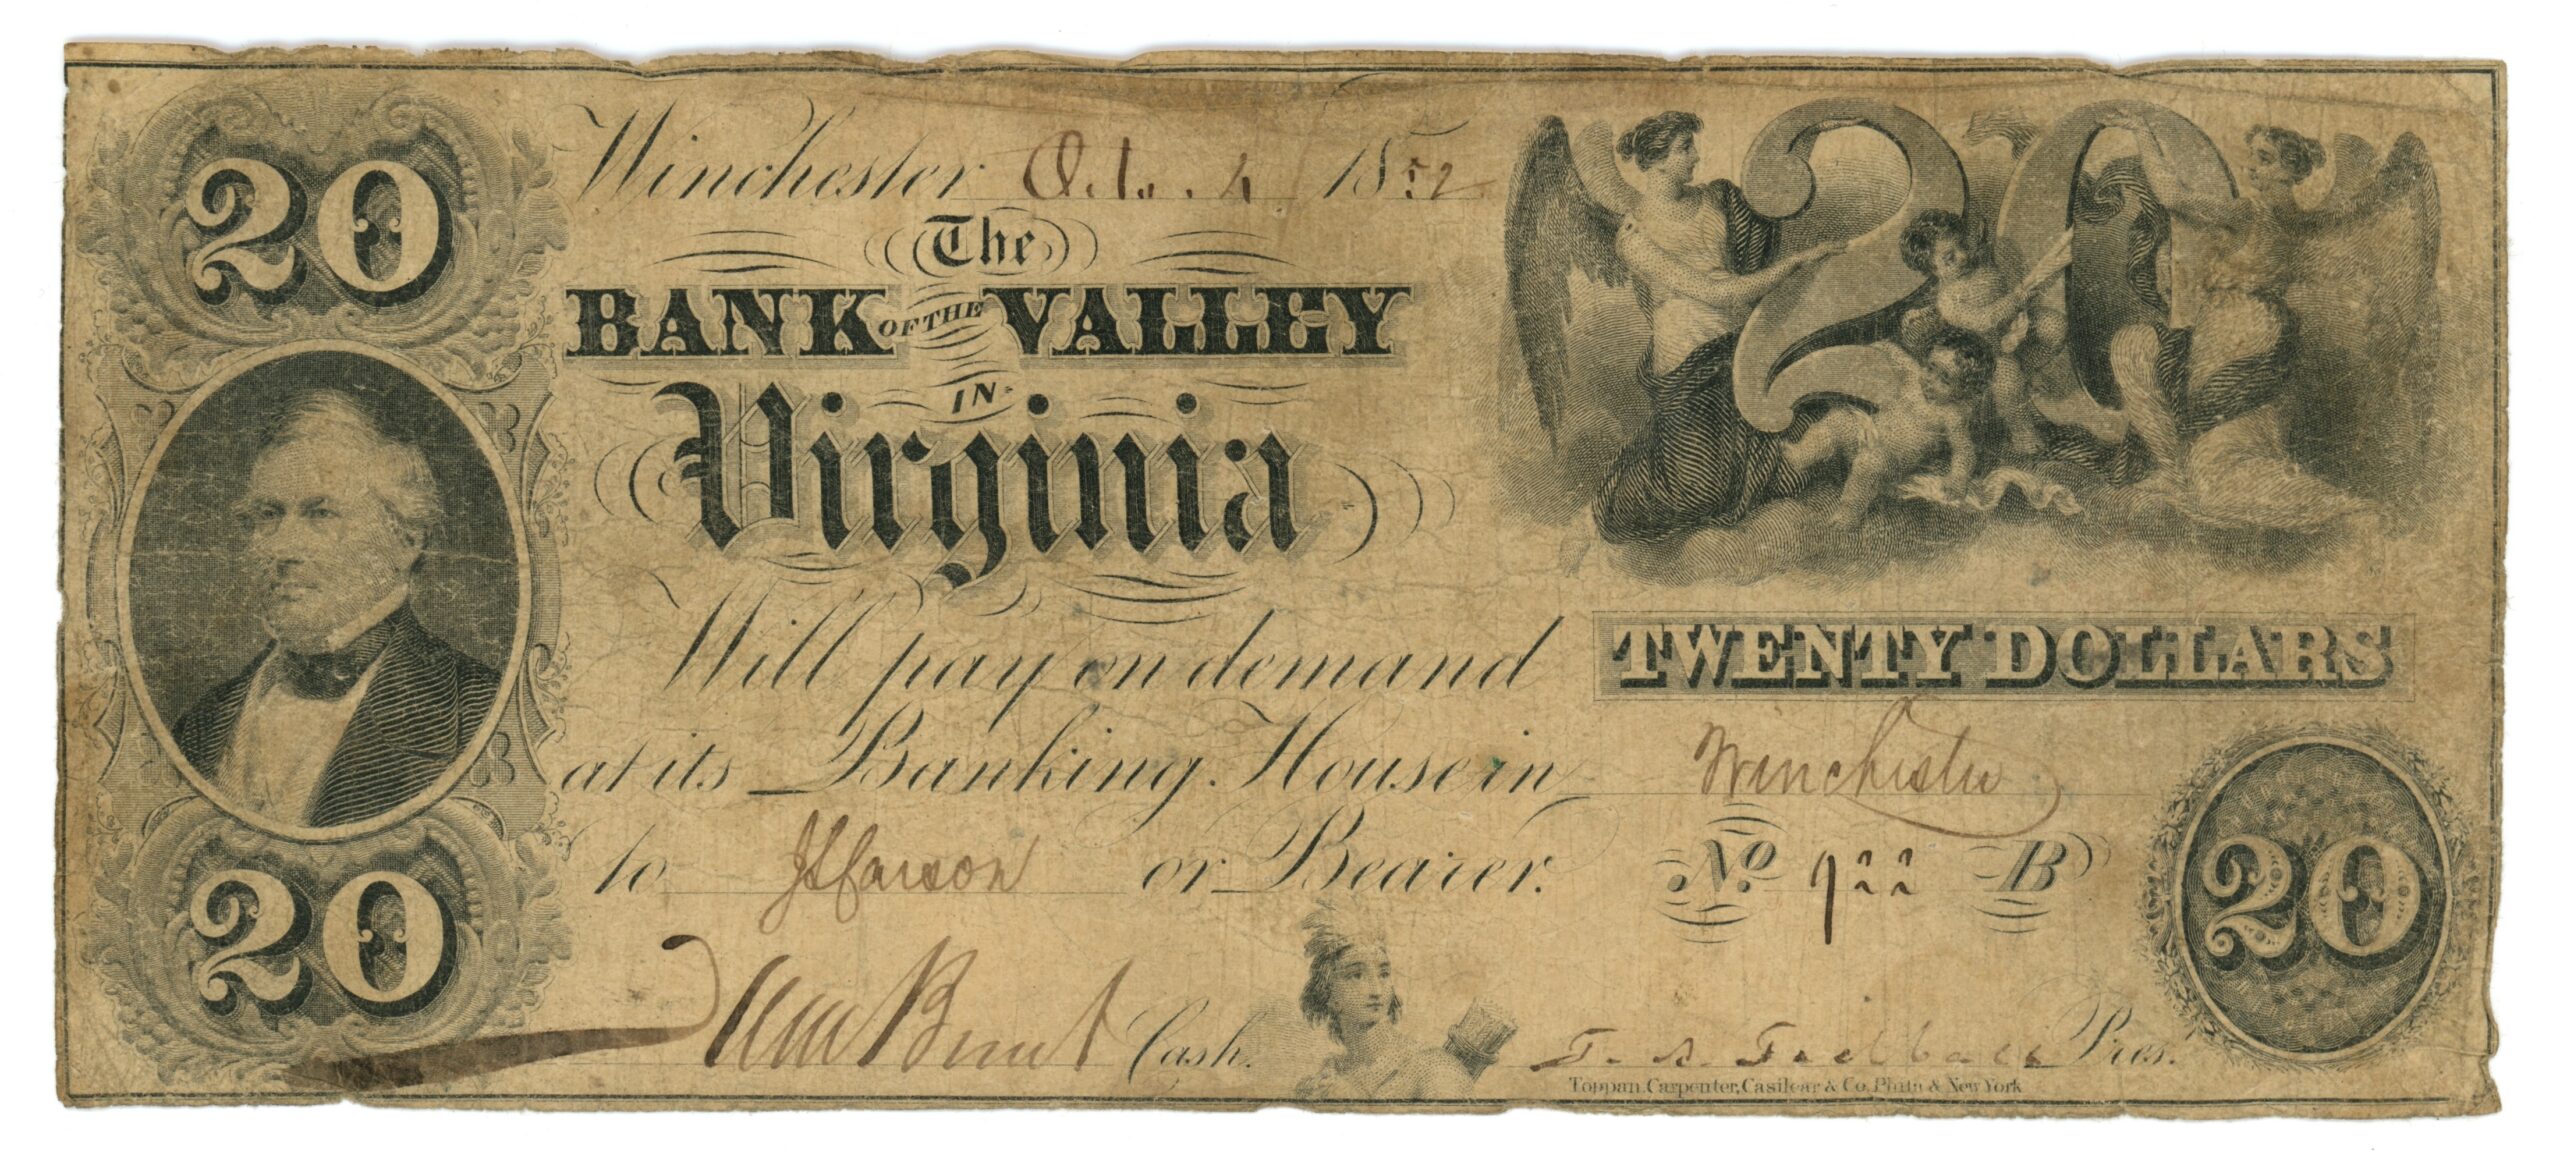 20
Winchester Oct. 4 1852
The
BANK OF THE VALLEY
IN
Virginia
20
Will pay on demand
TWENTY DOLLARS
at its Banking House in Winchester
to J S Carson or Bearer. No. 922 B
20
20
Cash. Pres.
Toppan, Carpenter, Casilear & Co. Phila & New York